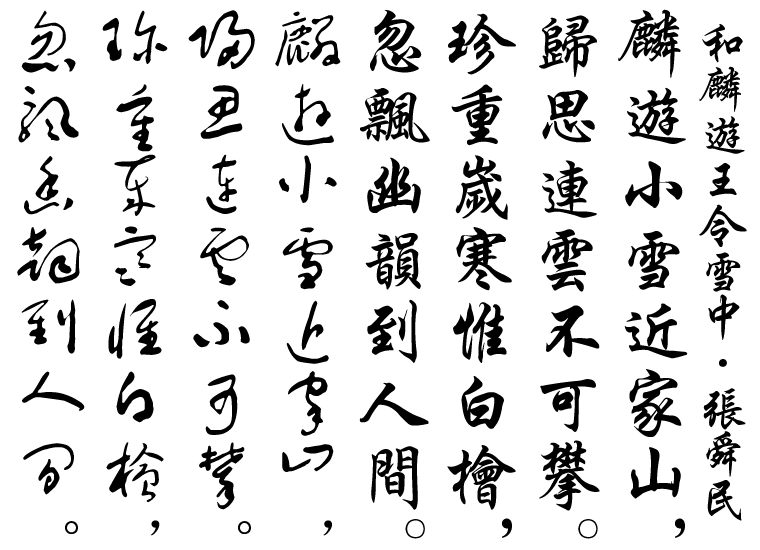 和麟遊王令雪中·張舜民
麟遊小雪近家山，
歸思連雲不可攀。
珍重歲寒惟白檜，
忽飄幽韻到人間。
麟遊小雪近家山，
歸思連雲不可攀。
珍重歲寒惟白檜，
忽飄幽韻到人間。